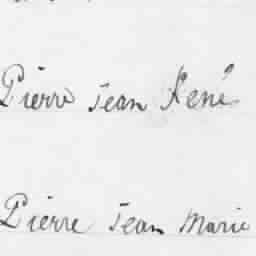 Pierre Jean René
Pierre Jean Marie